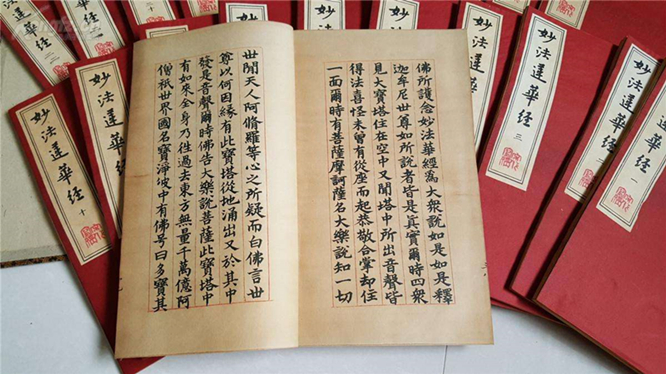 佛所護念妙法華經為大眾說如是如是釋
迦牟尼世尊如所說者皆是真實爾時四眾
見大寶塔住在空中又聞塔中所出音聲皆
得法喜怪未曾有從座而起恭敬合掌却住
一面爾時有菩薩摩訶薩名大樂說知一切
世間天人阿脩羅等心之所疑而白佛言世
尊以何因緣有此寶塔從地涌出又於其中
發是音聲爾時佛告大樂說菩薩此寶塔中
有如來全身乃往過去東方無量千萬億阿
僧祇世界國名寶淨彼中有佛号曰多寶其
妙法蓮華經 一
妙法蓮華經
妙法蓮華經 三
妙法蓮華經
妙法蓮華經
妙法蓮華經 十